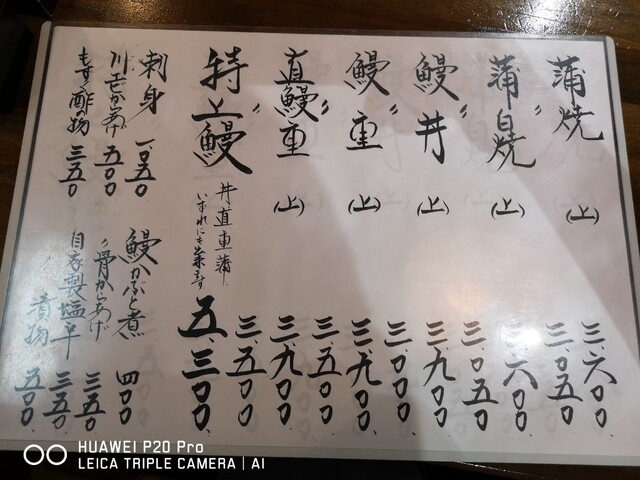 蒲焼 (上) 三、六〇〇
〃 三、〇五〇
蒲白焼 (上) 三、六〇〇
〃 三、〇五〇
鰻丼 (上) 三、九〇〇
〃 三、〇〇〇
鰻重 (上) 三、九〇〇
〃 三、五〇〇
直鰻重 (上) 三、九〇〇
〃 三、五〇〇
特上鰻 五、三〇〇
丼直重蒲
いずれにも出来ます
刺身 一、〇五〇
川エビからあげ 五〇〇
もずく酢の物 三五〇
鰻かぶと煮 四〇〇
〃骨からあげ 三五〇
自家製塩辛 三五〇
〃 漬物 五〇〇
HUAWEI P20 Pro
LEICA TRIPLE CAMERA | AI